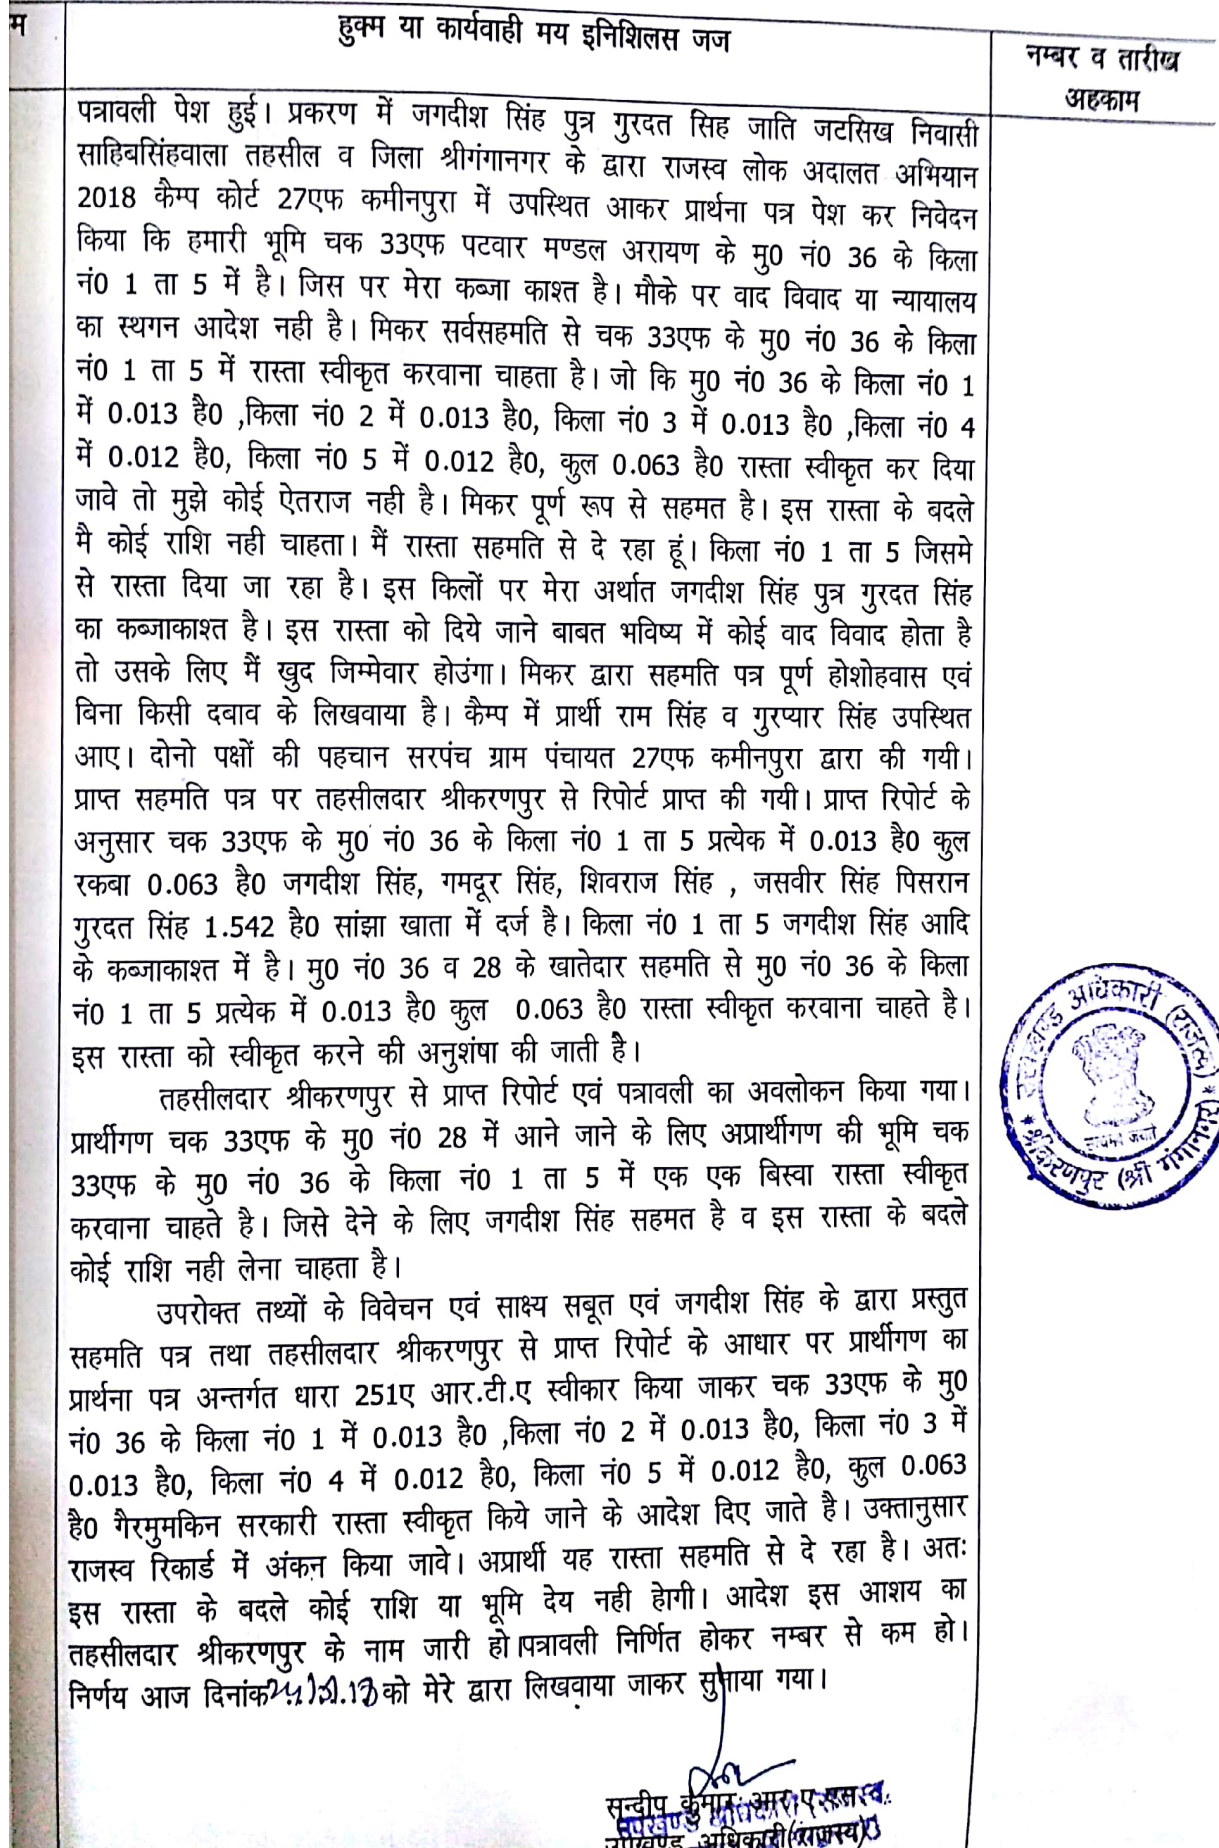 म
हुक्म या कार्यवाही मय इनिशिलस जज
नम्बर व तारीख
अहकाम
पत्रावली पेश हुई। प्रकरण में जगदीश सिंह पुत्र गुरदत सिह जाति जटसिख निवासी
साहिबसिंहवाला तहसील व जिला श्रीगंगानगर के द्वारा राजस्व लोक अदालत अभियान
2018 कैम्प कोर्ट 27एफ कमीनपुरा में उपस्थित आकर प्रार्थना पत्र पेश कर निवेदन
किया कि हमारी भूमि चक 33एफ पटवार मण्डल अरायण के मु0 नं0 36 के किला
नं0 1 ता 5 में है। जिस पर मेरा कब्जा काश्त है। मौके पर वाद विवाद या न्यायालय
का स्थगन आदेश नही है। मिकर सर्वसहमति से चक 33एफ के मु0 नं0 36 के किला
नं0 1 ता 5 में रास्ता स्वीकृत करवाना चाहता है। जो कि मु0 नं0 36 के किला नं0 1
में 0.013 है0 ,किला नं0 2 में 0.013 है0, किला नं0 3 में 0.013 है0 ,किला नं0 4
में 0.012 है0, किला नं0 5 में 0.012 है0, कुल 0.063 है0 रास्ता स्वीकृत कर दिया
जावे तो मुझे कोई ऐतराज नही है। मिकर पूर्ण रूप से सहमत है। इस रास्ता के बदले
मै कोई राशि नही चाहता। मैं रास्ता सहमति से दे रहा हूं। किला नं0 1 ता 5 जिसमे
से रास्ता दिया जा रहा है। इस किलों पर मेरा अर्थात जगदीश सिंह पुत्र गुरदत सिंह
का कब्जाकाश्त है। इस रास्ता को दिये जाने बाबत भविष्य में कोई वाद विवाद होता है
तो उसके लिए मैं खुद जिम्मेवार होउंगा। मिकर द्वारा सहमति पत्र पूर्ण होशोहवास एवं
बिना किसी दबाव के लिखवाया है। कैम्प में प्रार्थी राम सिंह व गुरप्यार सिंह उपस्थित
आए। दोनो पक्षों की पहचान सरपंच ग्राम पंचायत 27एफ कमीनपुरा द्वारा की गयी।
प्राप्त सहमति पत्र पर तहसीलदार श्रीकरणपुर से रिपोर्ट प्राप्त की गयी। प्राप्त रिपोर्ट के
अनुसार चक 33एफ के मु0 नं0 36 के किला नं0 1 ता 5 प्रत्येक में 0.013 है0 कुल
रकबा 0.063 है0 जगदीश सिंह, गमदूर सिंह, शिवराज सिंह , जसवीर सिंह पिसरान
गुरदत सिंह 1.542 है0 सांझा खाता में दर्ज है। किला नं0 1 ता 5 जगदीश सिंह आदि
के कब्जाकाश्त में है। मु0 नं0 36 व 28 के खातेदार सहमति से मु0 नं0 36 के किला
नं0 1 ता 5 प्रत्येक में 0.013 है0 कुल 0.063 है0 रास्ता स्वीकृत करवाना चाहते है।
इस रास्ता को स्वीकृत करने की अनुशंषा की जाती है।
तहसीलदार श्रीकरणपुर से प्राप्त रिपोर्ट एवं पत्रावली का अवलोकन किया गया।
प्रार्थीगण चक 33एफ के मु0 नं0 28 में आने जाने के लिए अप्रार्थीगण की भूमि चक
33एफ के मु0 नं0 36 के किला नं0 1 ता 5 में एक एक बिस्वा रास्ता स्वीकृत
करवाना चाहते है। जिसे देने के लिए जगदीश सिंह सहमत है व इस रास्ता के बदले
कोई राशि नही लेना चाहता है।
उपरोक्त तथ्यों के विवेचन एवं साक्ष्य सबूत एवं जगदीश सिंह के द्वारा प्रस्तुत
सहमति पत्र तथा तहसीलदार श्रीकरणपुर से प्राप्त रिपोर्ट के आधार पर प्रार्थीगण का
प्रार्थना पत्र अन्तर्गत धारा 251ए आर.टी.ए स्वीकार किया जाकर चक 33एफ के मु0
नं0 36 के किला नं0 1 में 0.013 है0 ,किला नं0 2 में 0.013 है0, किला नं0 3 में
0.013 है0, किला नं0 4 में 0.012 है0, किला नं0 5 में 0.012 है0, कुल 0.063
है0 गैरमुमकिन सरकारी रास्ता स्वीकृत किये जाने के आदेश दिए जाते है। उक्तानुसार
राजस्व रिकार्ड में अंकन किया जावे। अप्रार्थी यह रास्ता सहमति से दे रहा है। अतः
इस रास्ता के बदले कोई राशि या भूमि देय नही हेागी। आदेश इस आशय का
तहसीलदार श्रीकरणपुर के नाम जारी हो।पत्रावली निर्णित होकर नम्बर से कम हो।
निर्णय आज दिनांक को मेरे द्वारा लिखवाया जाकर सुनाया गया।
उपखण्ड अधिकारी (राजस्व)
श्रीकरणपुर (श्री गंगानगर)
सत्यमेव जयते
सन्दीप कुमार आर.ए.एस.
उपखण्ड अधिकारी(राजस्व)